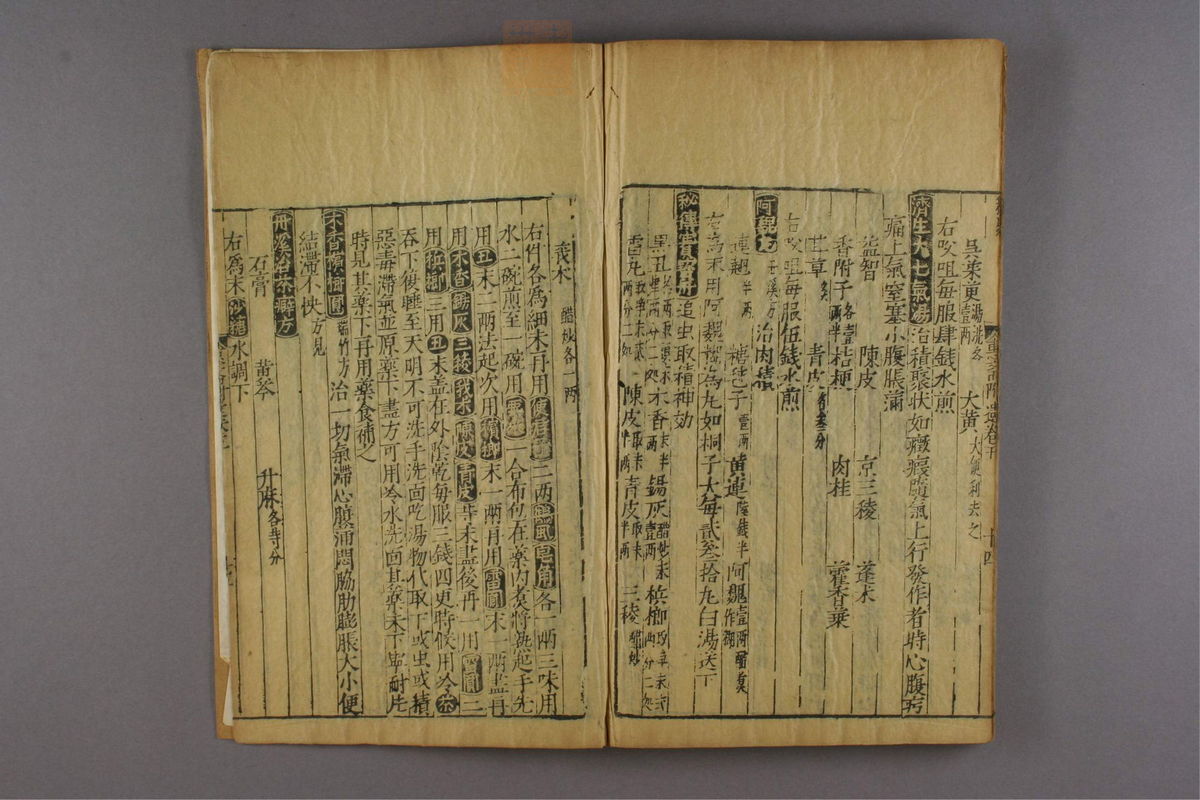 吳茱萸湯洗各壹兩 大黃大便利去之
右㕮咀每服肆錢水煎
濟生大七氣湯治積聚狀如癥瘕隨氣上行發作者時心腹㽲
痛上氣窒塞小腹脹滿
益智 陳皮 京三稜 蓬朮
香附子各壹兩半 桔梗 肉桂 藿香葉
甘草 青皮各叁分
右㕮咀每服伍錢水煎
阿魏丸丹溪方治肉積
連翹半兩 黃連陸錢半 阿魏壹兩醋煮作糊
右為末用阿魏糊為丸如桐子大每貳叁拾丸白湯送下
秘傳貴寶丹追虫取積神効
黑丑 木香 錫灰壹兩醋炒末 檳榔
雷丸 陳皮 青皮 三稜醋炒
莪朮醋炒各一兩
右件各為細末再用使君子二兩鼠皂角各一兩三味用
水二碗煎至一碗用 一合布包在藥內煮將熟起手先
用丑末二兩法起次用檳榔末一兩再用雷丸末一兩盡再
用木香錫灰三稜莪朮陳皮青皮等末盡後再一用雷丸二
用檳榔三用丑末蓋在外陰乾每服三錢四更時候用冷茶
吞下後睡至天明不可洗手洗面吃湯物代取下或虫或積
惡毒滯氣並原藥下盡方可用冷水洗面其藥未下且耐片
時見其藥下再用藥食補之
木香檳榔圓瑞竹方治一切氣滯心腹滿悶脇肋膨脹大小便
結滯不快方見
丹溪治茶癖方
石膏 黃芩 升麻各等分
右為末砂糖水調下